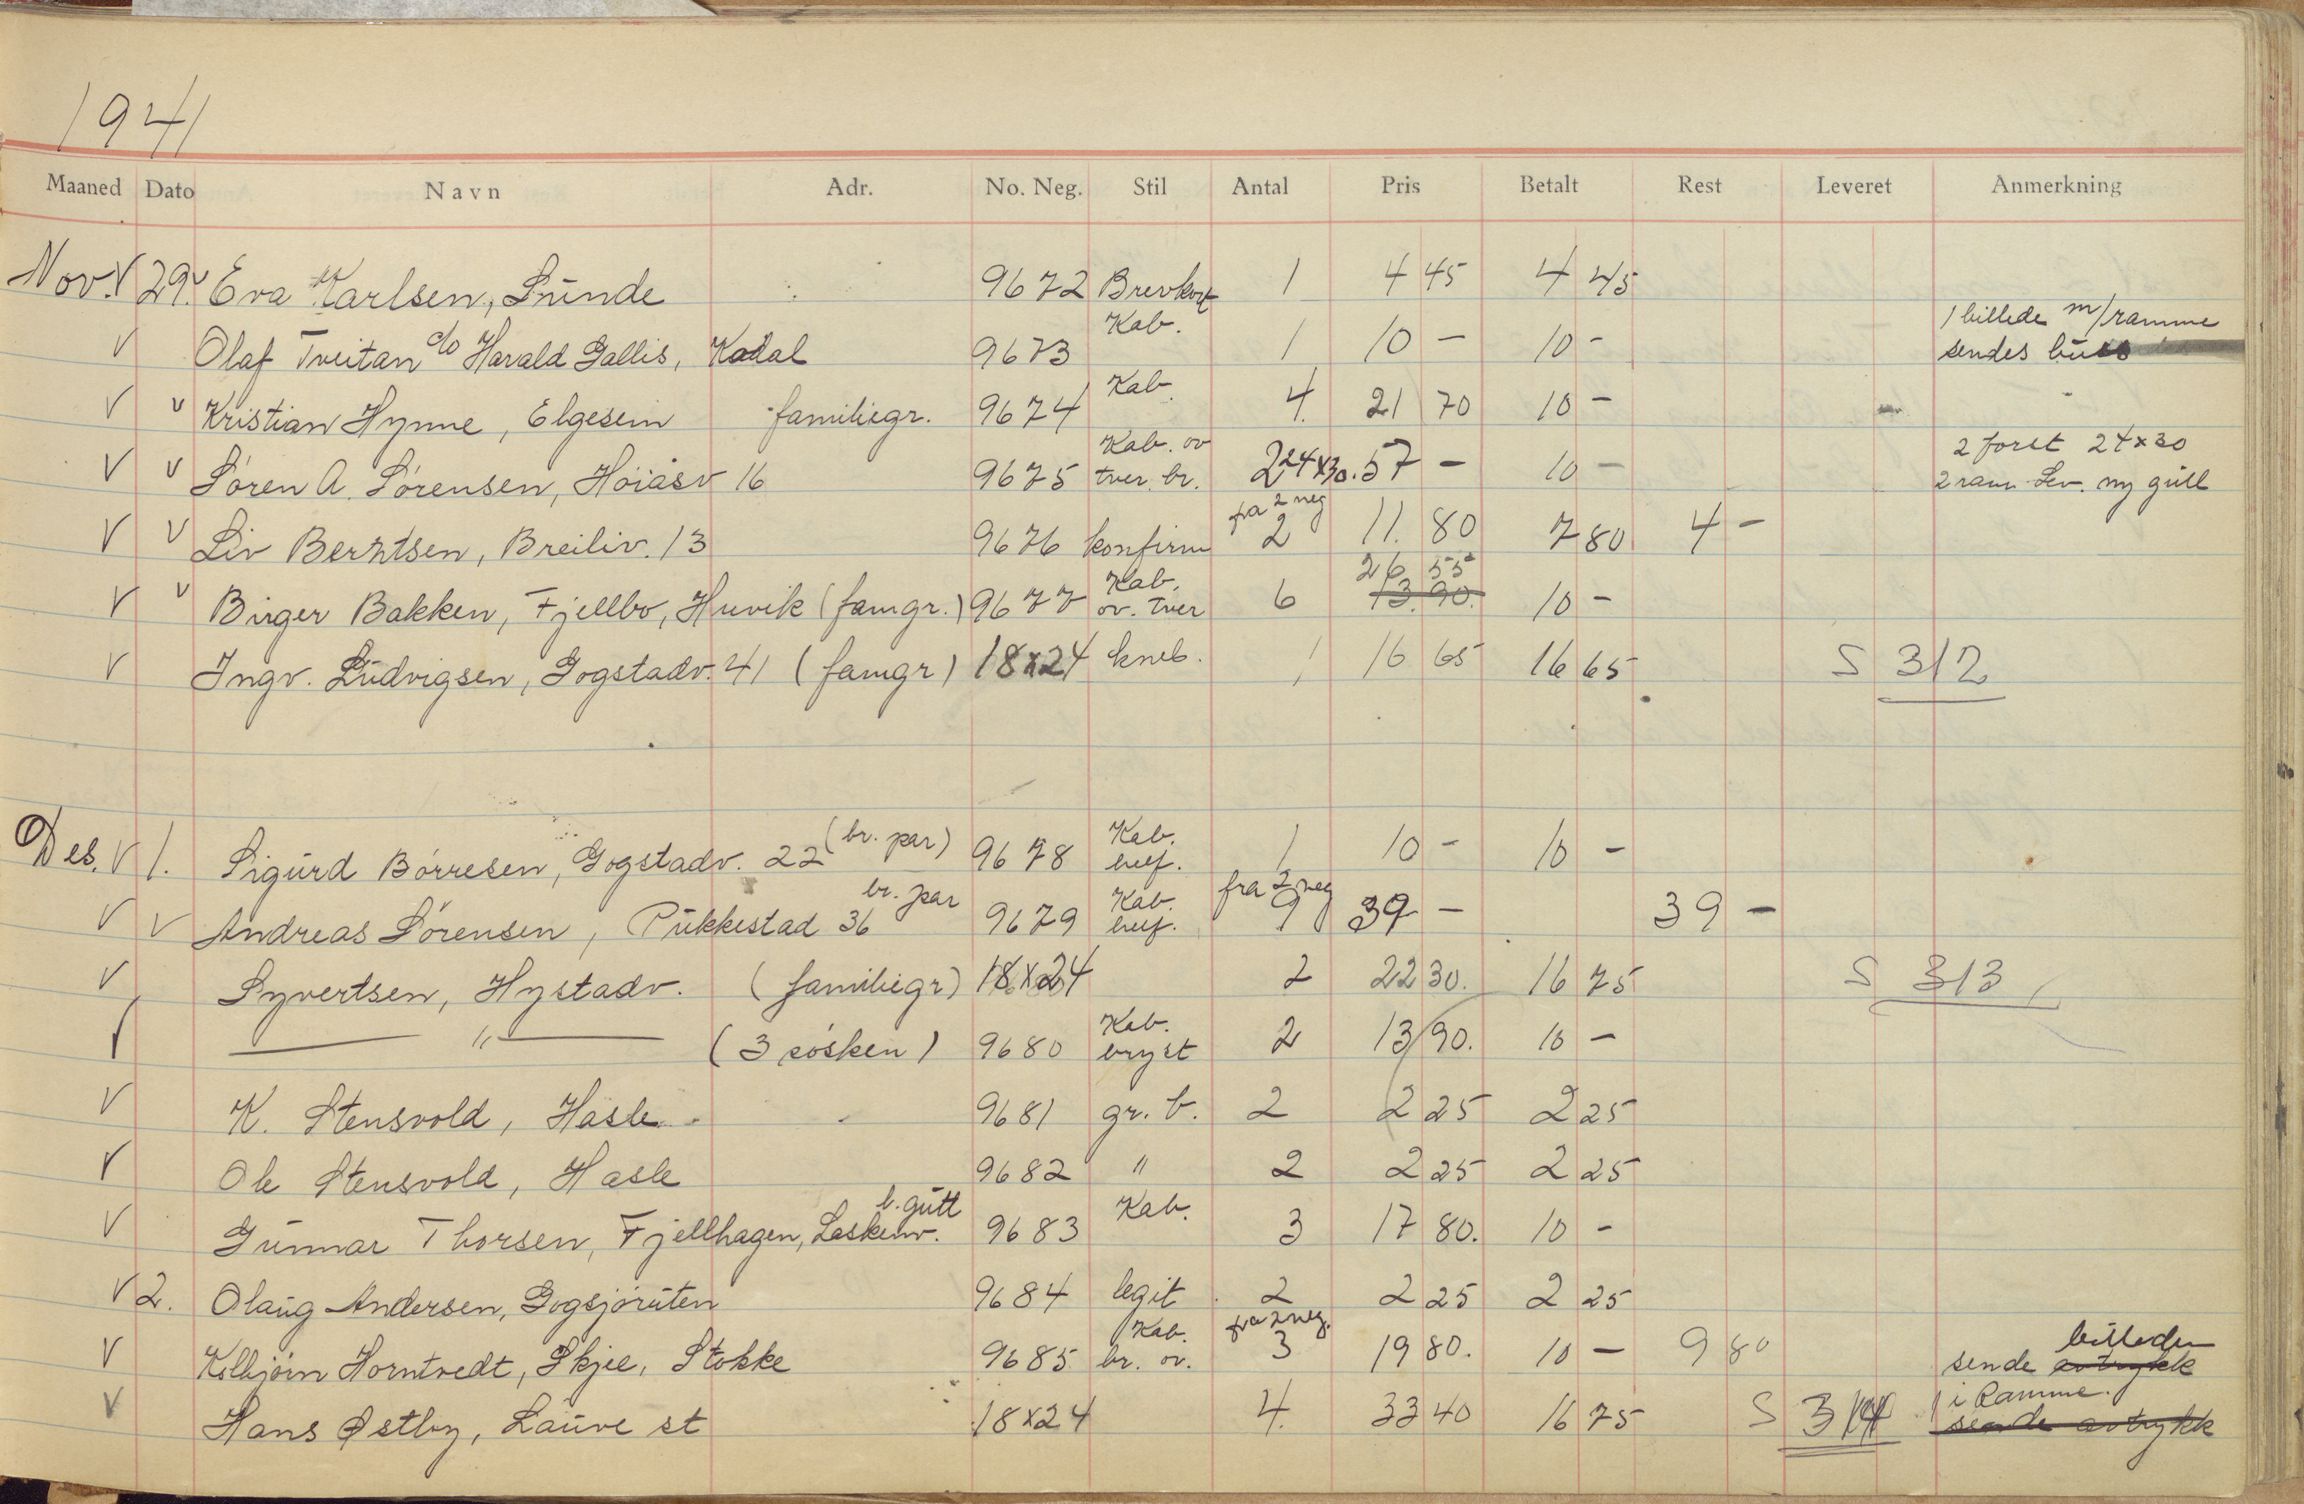 1941
Maaned Dato Navn Adr. No. Neg. Stil Antal Pris Betalt Rest Leveret Anmerkning
Nov. V 29. v Eva Karlsen, Lunde 9672 Brevkort 1 4 45 4 45
V Olaf Tveitan c/o Harald Gallis, Kodal 9673 Kab. 1 10 - 10 - 1 billede m/ramme
sendes buss
V v Kristian Hynne, Elgesem familiegr. 9674 Kab. 4. 21 70 10 -
V v Sören A. Sörensen, Höiåsv 16 9675 Kab. ov tver. br. 2 24x30. 57 - 10 - 2 forst 24x30
2 ram Lev. ny gull
V V Liv Berntsen, Breiliv. 13 9676 konfirm fra 2 neg 2 11. 80 7 80 4 -
26 55
V v Birger Bakken, Fjellbo, Huvik (famgr.) 9677 Kab. ov. tver 6 13.90. 10 -
V Ingv. Ludvigsen, Gogstadv. 41 (famgr) 18x24 kneb. 1 16 65 16 65 S 312
Des. V 1. Sigurd Börresen, Gogstadv. 22 (br. par) 9678 Kab. 1 10 - 10 -
V V Andreas Sörensen, Pukkestad 36 br. par 9679 Kab. fra 2 neg 9 39 - 39 -
V Syvertsen, Hystadv. (familiegr) 18x24 2 22 30. 16 75 S 313
V — " — (3 sösken) 9680 Kab. bryst 2 13 90. 10 -
V K. Stensvold, Hasle 9681 gr. b. 2 2 25 2 25
V Ole Stensvold, Hasle 9682 " 2 2 25 2 25
V Gunnar Thorsen, Fjellhagen, Laskenv. b. gutt 9683 Kab. 3 17 80. 10 -
V 2. Olaug Andersen, Gogsjöruten 9684 legit 2 2 25 2 25
V Kolbjörn Horntvedt, Skjee, Stokke 9685 Kab. br. ov. fra 2 neg. 3 19 80. 10 - 9 80 billeder
sende avtrykk
i Ramme.
V Hans Østby, Lauve st 18x24 4. 33 40 16 75 S 314 sende avtrykk